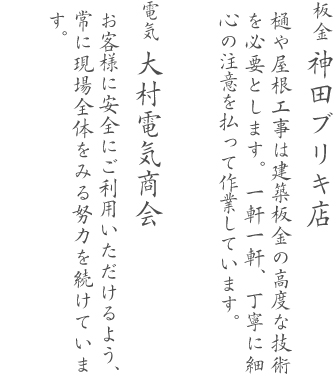 板金 神田ブリキ店
樋や屋根工事は建築板金の高度な技術
を必要とします。一軒一軒、丁寧に細
心の注意を払って作業しています。
電気 大村電気商会
お客様に安全にご利用いただけるよう、
常に現場全体をみる努力を続けていま
す。